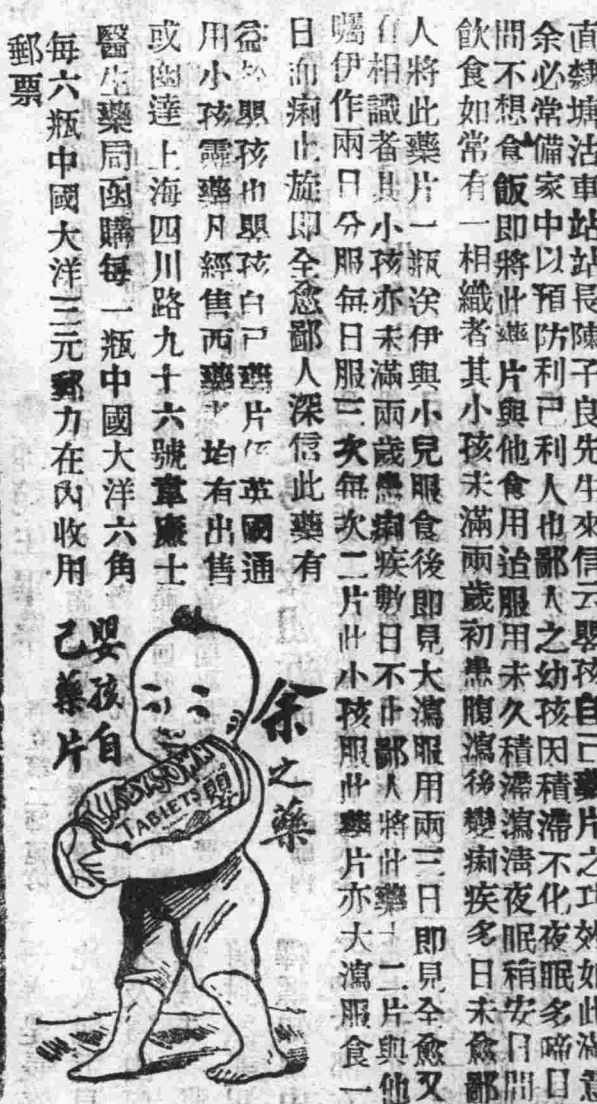 直隸塘沽車站站長陳子良先生來信云嬰孩自己藥片之功效如此滿意
余必常備家中以預防利己利人也鄙人之幼孩因積滯不化夜眠多啼日
間不想食飯即將此藥片與他食用迨服用未久積滯瀉淸夜眠稍安日間
飲食如常有一相織者其小孩未滿兩歲初患腹瀉後變痢疾多日未愈鄙
人將此藥片一瓶送伊與小兒服食後即見大瀉服用兩三日即見全愈又
有相識者其小孩亦未滿兩歲患痢疾數日不止鄙人將此藥十二片與他
囑伊作兩日分服每日服三次每次二片此小孩服此藥片亦大瀉服食一
日而痢止旋即全愈鄙人深信此藥有
益於嬰孩也嬰孩自己藥片 英國通
用小孩靈藥凡經售西藥者均有出售
或函達上海四川路九十六號韋廉士
醫生藥局函購每一瓶中國大洋六角
每六瓶中國大洋三元郵力在內收用
郵票
余之藥
嬰孩自
己藥片
BABY'S OWN
TABLETS